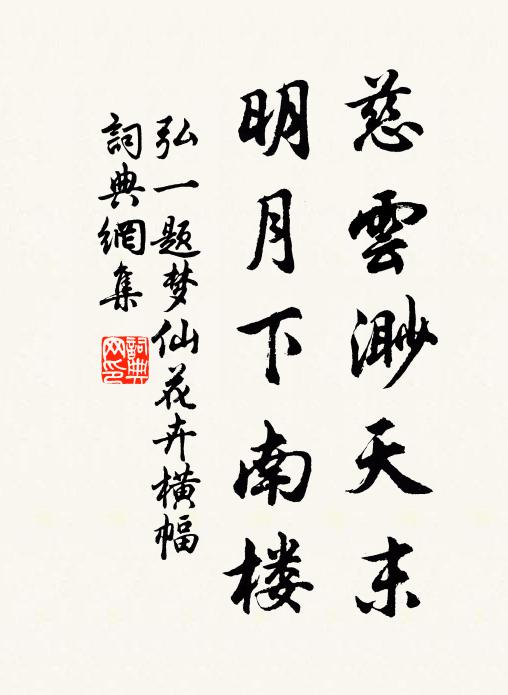 慈雲渺天末
明月下南楼
弘一题梦仙花卉横幅
詞典網集
詞典网印